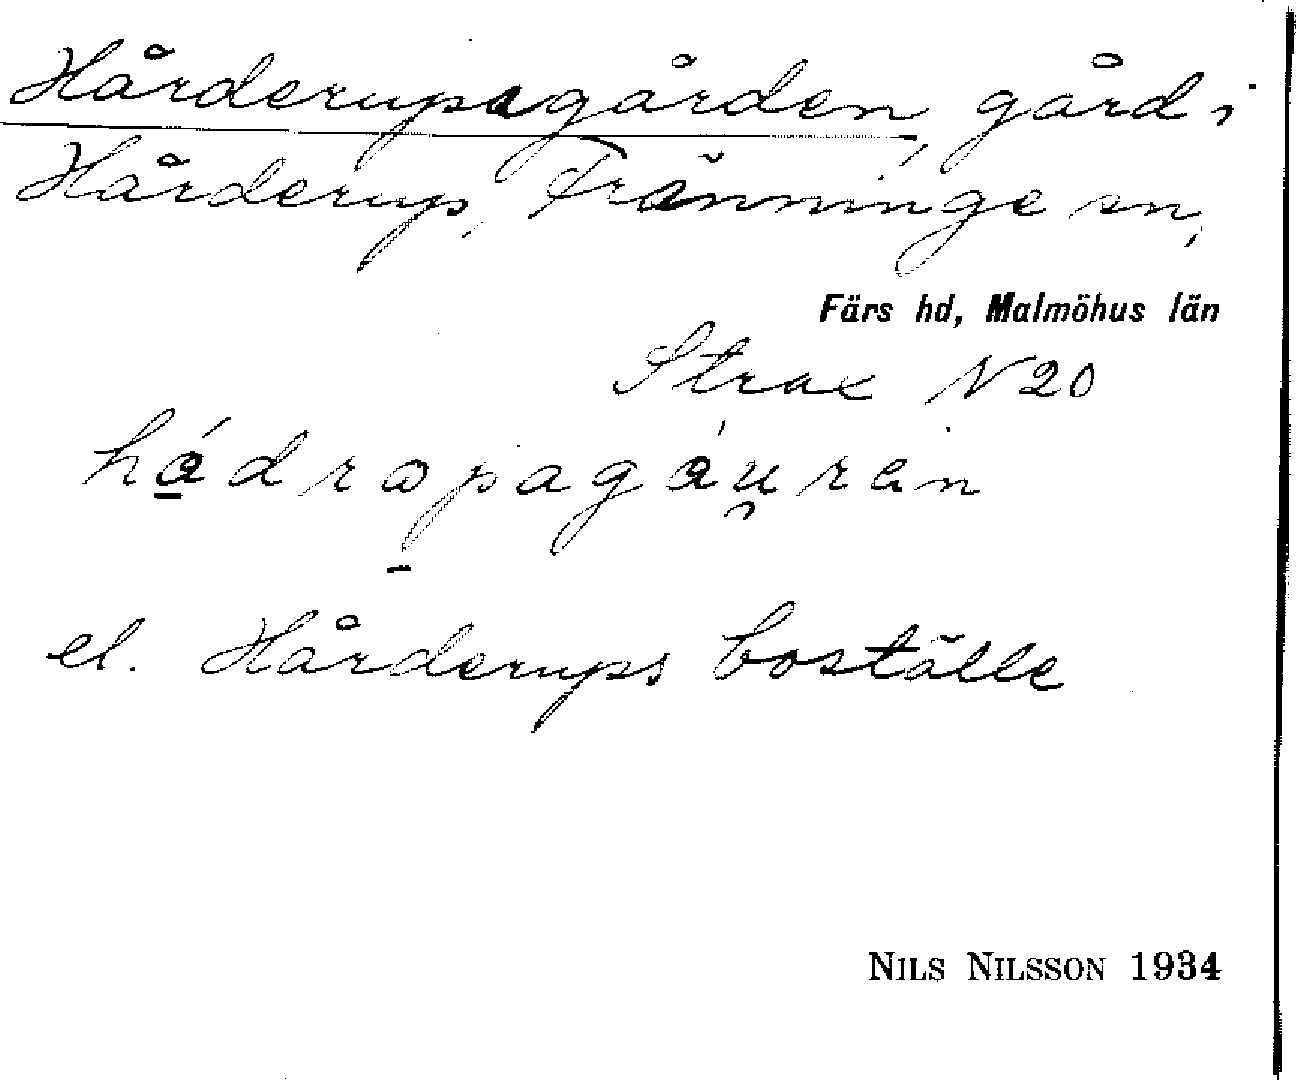 Hårderupagården, gård i
Hårderup, Tränninge sn,
Färs hd, Malmöhus län
Strax N 20
hádropagáu̯rèn
el. Hårderups boställe
NILS NILSSON 1934